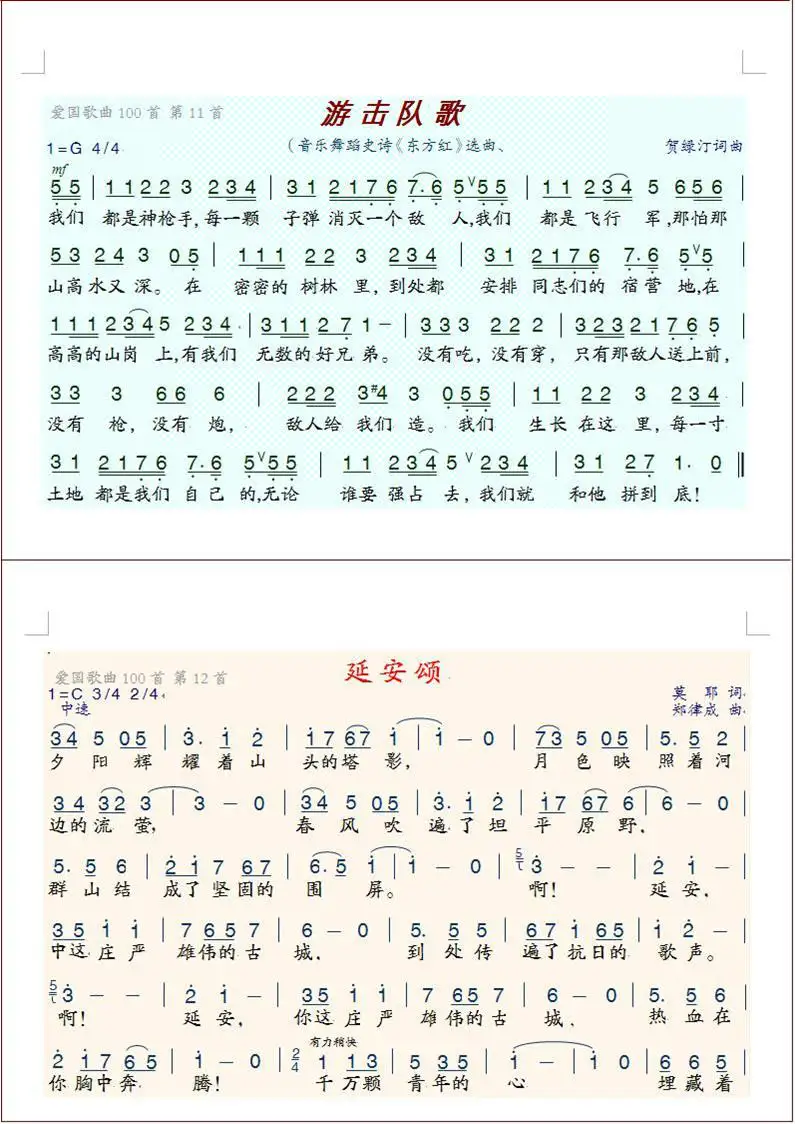 爱国歌曲100首 第11首
游击队歌
1=G 4/4
(音乐舞蹈史诗《东方红》选曲、
贺绿汀词曲
mf
5 5 | 1 1 2 2 3 2 3 4 | 3 1 2 1 7 6 7·6 5 V 5 5 | 1 1 2 3 4 5 6 5 6
我们 都是神枪手,每一颗 子弹 消灭一个敌 人,我们 都是 飞行 军,那怕那
5 3 2 4 3 0 5 | 1 1 1 2 2 3 2 3 4 | 3 1 2 1 7 6 7·6 5 V 5
山高水又深。在 密密的 树林 里,到处都 安排 同志们的 宿营 地,在
1 1 1 2 3 4 5 2 3 4 | 3 1 1 2 7 1 – | 3 3 3 2 2 2 | 3 2 3 2 1 7 6 5
高高的山岗 上,有我们 无数的好兄弟。 没有吃,没有穿, 只有那敌人送上前,
3 3 3 6 6 6 | 2 2 2 3 #4 3 0 5 5 | 1 1 2 2 3 2 3 4
没有 枪,没有 炮, 敌人给 我们 造。我们 生长 在这 里,每一寸
3 1 2 1 7 6 7·6 5 V 5 5 | 1 1 2 3 4 5 V 2 3 4 | 3 1 2 7 1· 0 ‖
土地 都是我们 自己 的,无论 谁要 强占 去,我们就 和他 拼到 底!
爱国歌曲100首 第12首
延安颂
1=C 3/4 2/4
中速
莫 耶 词
郑律成 曲
3 4 5 0 5 | 3· 1 2 | 1 7 6 7 1 | 1 – 0 | 7 3 5 0 5 | 5· 5 2
夕 阳 辉 耀着山 头的塔 影, 月 色映 照着河
3 4 3 2 3 | 3 – 0 | 3 4 5 0 5 | 3· 1 2 | 1 7 6 7 6 | 6 – 0
边的流 萤, 春 风 吹 遍了坦 平 原 野、
5· 5 6 | 2 1 7 6 7 | 6· 5 1 | 1 – 0 | 5 3 – – | 2 1 –
群山结 成了 坚固的 围 屏。 啊! 延安,
3 5 1 1 | 7 6 5 7 | 6 – 0 | 5· 5 5 | 6 7 1 6 5 | 1 2 –
中这 庄严 雄伟的古 城、 到 处传 遍了抗日的 歌声。
5 3 – – | 2 1 – | 3 5 1 1 | 7 6 5 7 | 6 – 0 | 5· 5 6
啊! 延安, 你这 庄 严 雄伟的古 城、 热 血在
有力稍快
2 1 7 6 5 | 1 – 0 | 2/4 1 1 3 | 5 3 5 | 1 – | 1 0 | 6 6 5
你胸中奔 腾! 千万颗 青年的 心 埋藏着